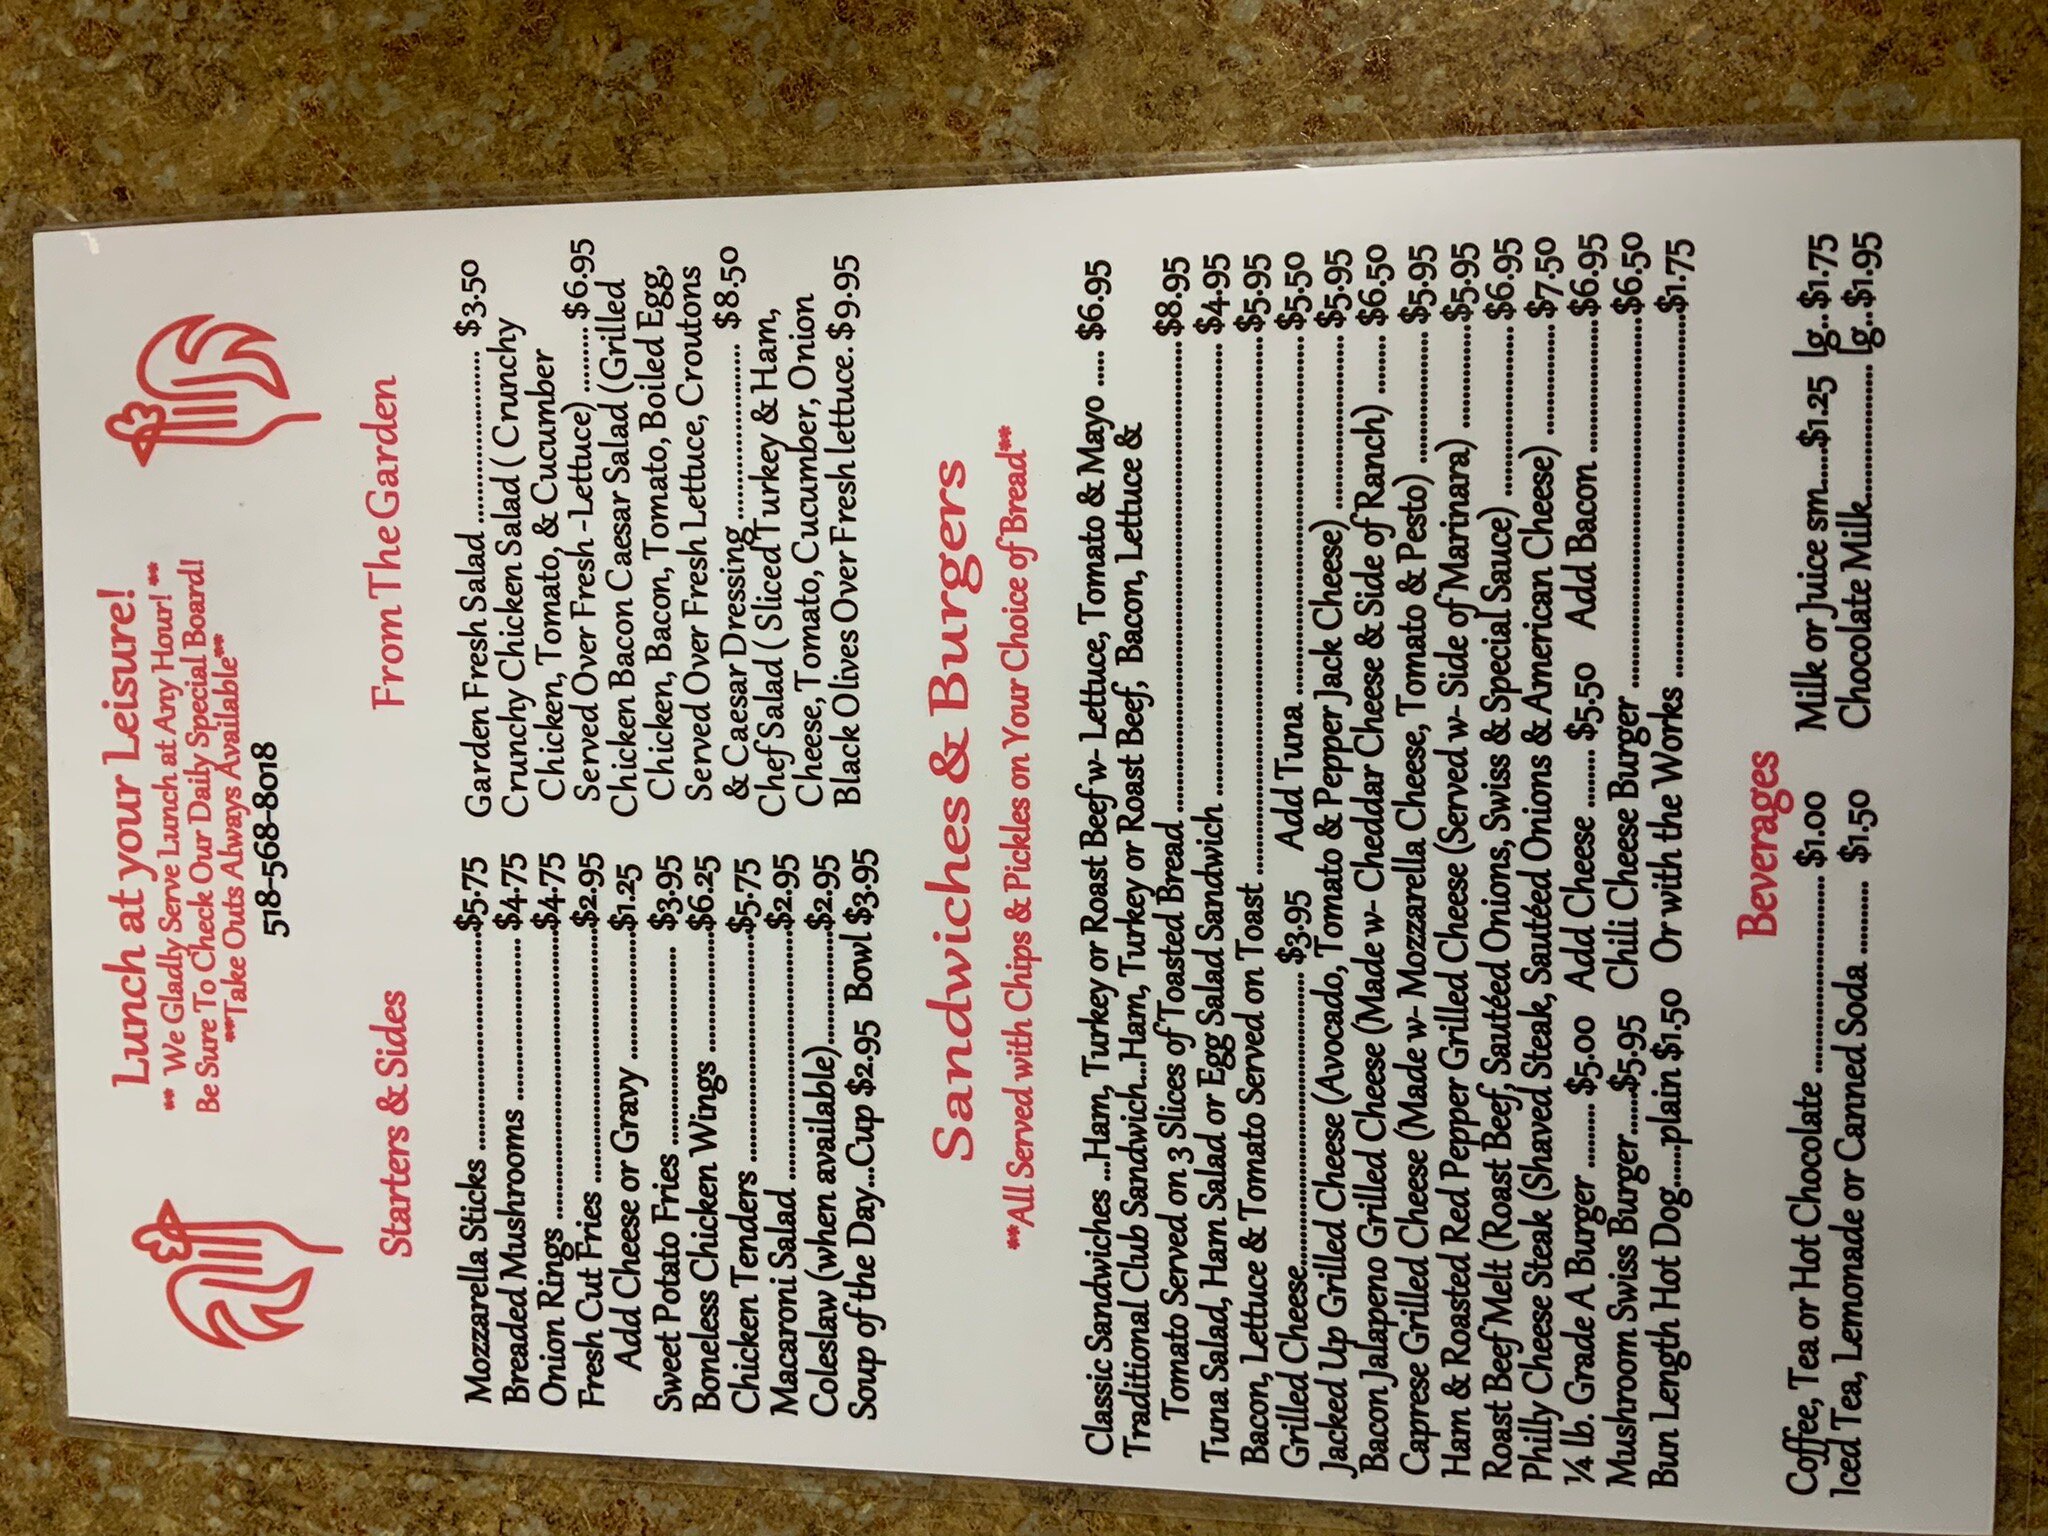 Lunch at your Leisure!
** We Gladly Serve Lunch at Any Hour! **
Be Sure To Check Our Daily Special Board!
**Take Outs Always Available**
518-568-8018
Starters & Sides
Mozzarella Sticks ........................$5.75
Breaded Mushrooms .................. $4.75
Onion Rings ................................$4.75
Fresh Cut Fries ............................$2.95
Add Cheese or Gravy ..............$1.25
Sweet Potato Fries ...................... $3.95
Boneless Chicken Wings .............$6.25
Chicken Tenders .........................$5.75
Macaroni Salad ...........................$2.95
Coleslaw (when available).............$2.95
Soup of the Day...Cup $2.95 Bowl $3.95
From The Garden
Garden Fresh Salad ...................... $3.50
Crunchy Chicken Salad ( Crunchy
Chicken, Tomato, & Cucumber
Served Over Fresh -Lettuce) ........ $6.95
Chicken Bacon Caesar Salad (Grilled
Chicken, Bacon, Tomato, Boiled Egg,
Served Over Fresh Lettuce, Croutons
& Caesar Dressing ..................... $8.50
Chef Salad ( Sliced Turkey & Ham,
Cheese, Tomato, Cucumber, Onion
Black Olives Over Fresh lettuce. $9.95
Sandwiches & Burgers
**All Served with Chips & Pickles on Your Choice of Bread**
Classic Sandwiches ...Ham, Turkey or Roast Beef w- Lettuce, Tomato & Mayo .... $6.95
Traditional Club Sandwich...Ham, Turkey or Roast Beef, Bacon, Lettuce &
Tomato Served on 3 Slices of Toasted Bread............................................................$8.95
Tuna Salad, Ham Salad or Egg Salad Sandwich ....................................................... $4.95
Bacon, Lettuce & Tomato Served on Toast ..................................................................$5.95
Grilled Cheese.................................... $3.95 Add Tuna ............................................$5.50
Jacked Up Grilled Cheese (Avocado, Tomato & Pepper Jack Cheese) ......................$5.95
Bacon Jalapeno Grilled Cheese (Made w- Cheddar Cheese & Side of Ranch) ........ $6.50
Caprese Grilled Cheese (Made w- Mozzarella Cheese, Tomato & Pesto) ................$5.95
Ham & Roasted Red Pepper Grilled Cheese (Served w- Side of Marinara) ............$5.95
Roast Beef Melt (Roast Beef, Sautéed Onions, Swiss & Special Sauce) ..................... $6.95
Philly Cheese Steak (Shaved Steak, Sautéed Onions & American Cheese) ............. $7.50
¼ lb. Grade A Burger ......... $5.00 Add Cheese ........ $5.50 Add Bacon ................$6.95
Mushroom Swiss Burger......$5.95 Chili Cheese Burger ................................................$6.50
Bun Length Hot Dog......plain $1.50 Or with the Works .............................................$1.75
Beverages
Coffee, Tea or Hot Chocolate ........................... $1.00
Iced Tea, Lemonade or Canned Soda .......... $1.50
Milk or Juice sm.....$1.25 lg..$1.75
Chocolate Milk................. lg..$1.95